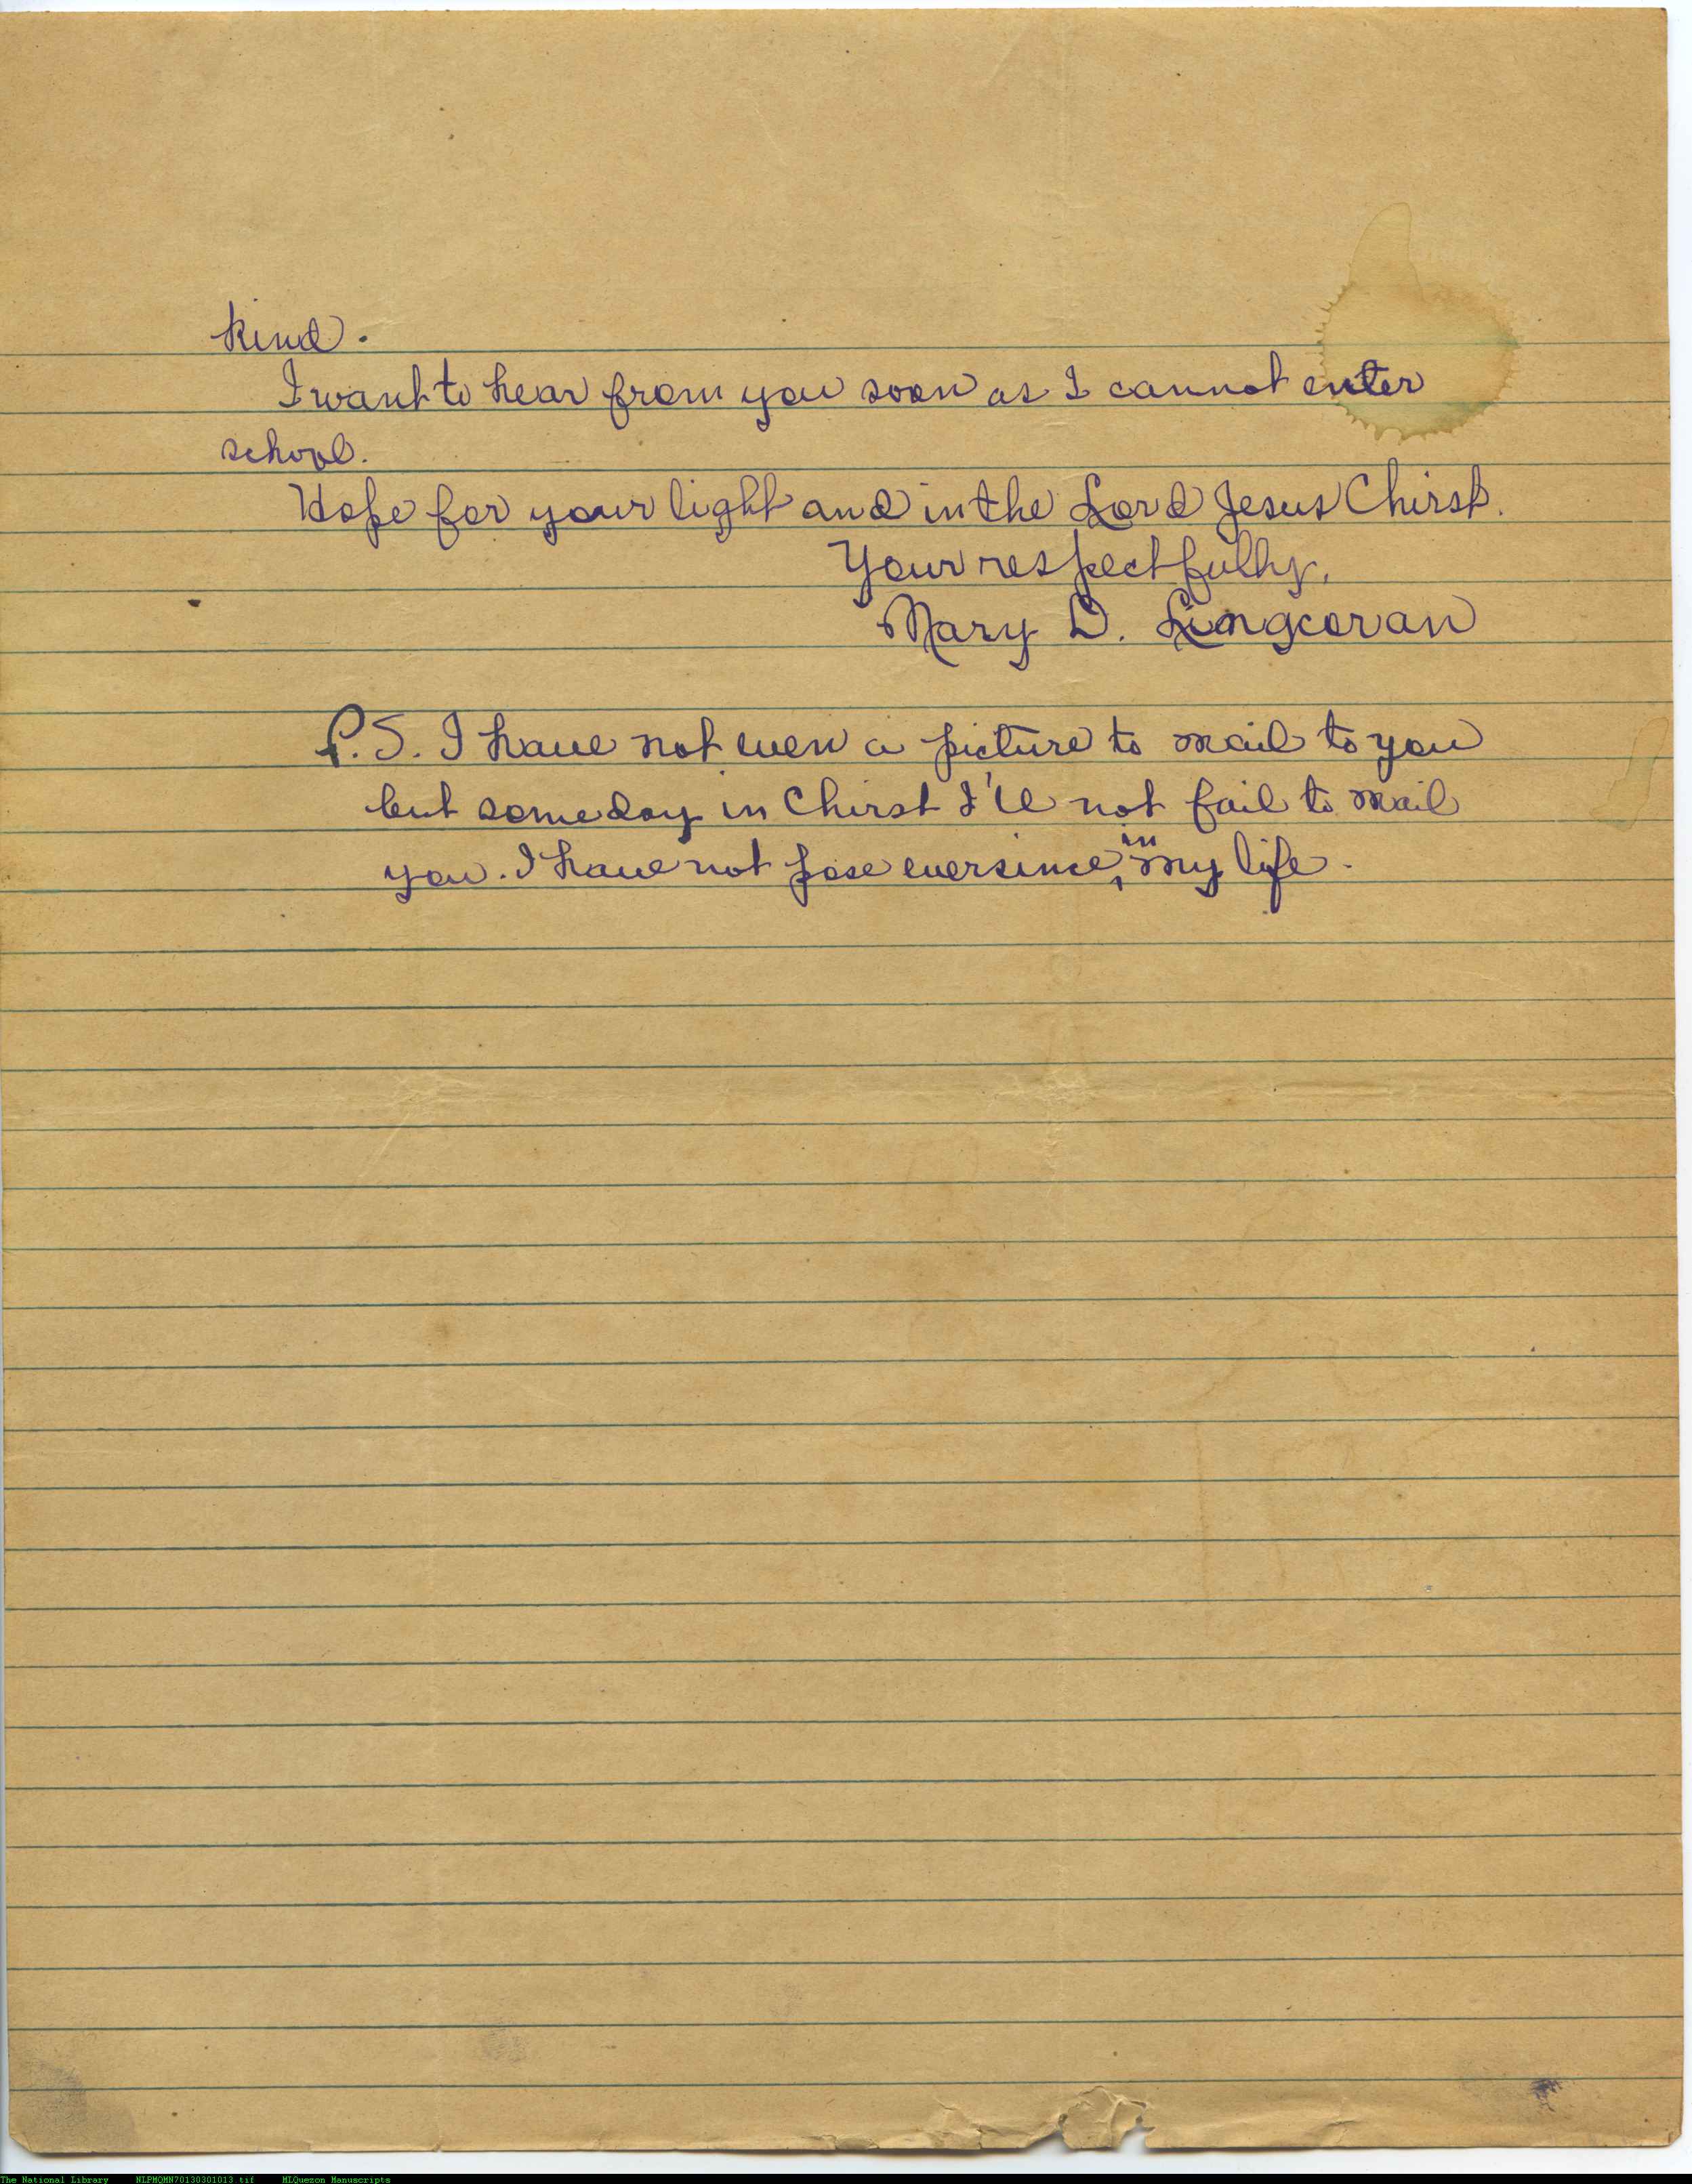 kind.
I want to hear from you soon as I cannot enter
school.
Hope for your light and in the Lord Jesus Chirst.
Your respectfully,
Mary D. Lingcoran
P.S. I have not even a picture to mail to you
but someday in Chirst I'll not fail to mail
you. I have not pose eversince, in my life.
The National Library NLPMQMN70130301013.tif MLQuezon Manuscripts